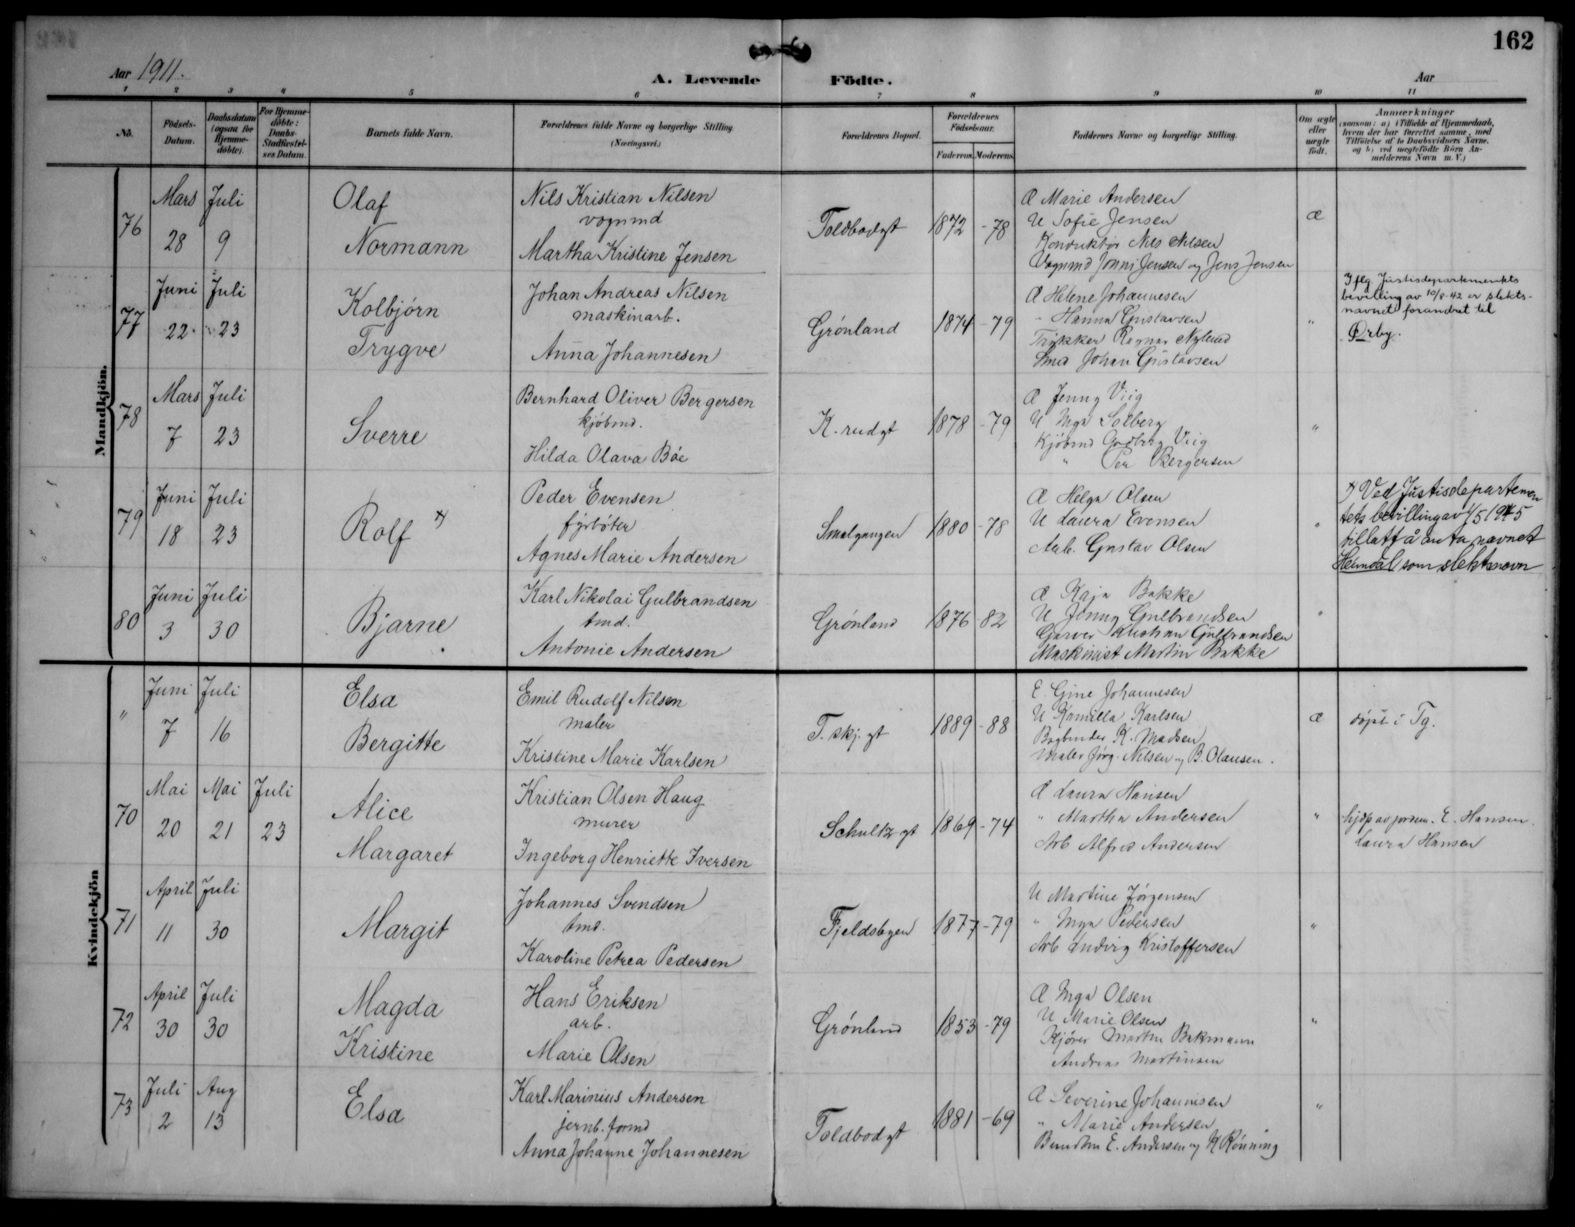 162
Aar 1911.
A. Levende Födte.
Aar
1 2 3 4 5 6 7 8 9 10 11
No.
Födsels-Datum.
Daabsdatum (ogsaa for Hjemmedöbte).
For Hjemmedöbte: Daabs-Stadfæstelses Datum.
Barnets fulde Navn.
Forældrenes fulde Navne og borgerlige Stilling (Næringsvei.)
Forældrenes Bopæl.
Forældrenes Födselsaar.
Faderens. Moderens.
Faddernes Navne og borgerlige Stilling.
Om ægte eller uægte födt.
Anmærkninger
(saasom: a) i Tilfælde af Hjemmedaab, hvem der har forrettet samme, med Tilföielse af to Daabsvidners Navne, og b) ved uægtefödte Börn Anmelderens Navn m. V.)
Mandkjön.
76
Mars 28
Juli 9
Olaf
Normann
Nils Kristian Nilsen
vognmd
Martha Kristine Jensen
Toldbodgt
1872 -78
Æ Marie Andersen
U Sofie Jensen
Konduktør Nils Nilsen
Vognmd Jonni Jensen og Jens Jensen
Æ
77
Juni 22
Juli 23
Kolbjørn
Trygve
Johan Andreas Nilsen
maskinarb.
Anna Johannesen
Grønland
1874 -79
Æ Helene Johannesen
" Hanna Gustavsen
Trykker Ragnar Nylund
Smd Johan Gustavsen
"
Iflg Justisdepartementets
bevilling av 10/8-42 er slekts-
navnet forandret til
Ørby.
78
Mars 7
Juli 23
Sverre
Bernhard Oliver Bergersen
kjøbmd.
Hilda Olava Bøe
K.rudgt
1878 -79
Æ Jenny Viig
U Inga Solberg
Kjøbmd Godberg Viig
" Per Bergersen
"
79
Juni 18
Juli 23
Rolf x)
Peder Evensen
fyrbøter
Agnes Marie Andersen
Smalgangen
1880 -78
Æ Helga Olsen
U Laura Evensen
Arb. Gustav Olsen
"
x) Ved Justisdepartemen
tets bevilling av 1/5 1945
tillatt å anta navnet
Heimdal som slektsnavn
80
Juni 3
Juli 30
Bjarne
Karl Nikolai Gulbrandsen
tmd.
Antonie Andersen
Grønland
1876 -82
Æ Kaja Bakke
U Jenny Gulbrandsen
Garver Kristian Gulbrandsen
Maskinist Martin Bakke
"
Kvindekjön
"
Juni 7
Juli 16
Elsa
Bergitte
Emil Rudolf Nilsen
maler
Kristine Marie Karlsen
T.skj.gt
1889 -88
E. Gine Johannesen
U Kamilla Karlsen
Bogbinder K. Madsen
Maler Jørg. Nilsen og B. Olausen.
Æ
døpt i Tg.
70
Mai 20
Mai 21
Juli 23
Alice
Margaret
Kristian Olsen Haug
murer
Ingeborg Henriette Iversen
Schultz gt
1869 -74
Æ Laura Hansen
" Martha Andersen
Arb Alfred Andersen
"
hjdp av jordm. E. Hansen.
Laura Hansen
71
April 11
Juli 30
Margit
Johannes Svendsen
tmd.
Karoline Petrea Pedersen
Fjeldsbyen
1877 -79
U Martine Jørgensen
" Inga Pedersen
Arb Ludvig Kristoffersen
"
72
April 30
Juli 30
Magda
Kristine
Hans Eriksen
arb.
Marie Olsen
Grønland
1853 -79
Æ Inga Olsen
U Marie Olsen
Kjører Martin Bakmann
Andreas Martinsen
"
73
Juli 2
Aug 13
Elsa
Karl Marinius Andersen
jernb. formd
Anna Johanne Johannesen
Toldbodgt
1881 -69
Æ Severine Johannesen
" Marie Andersen
E. Andersen og K Rønning
"